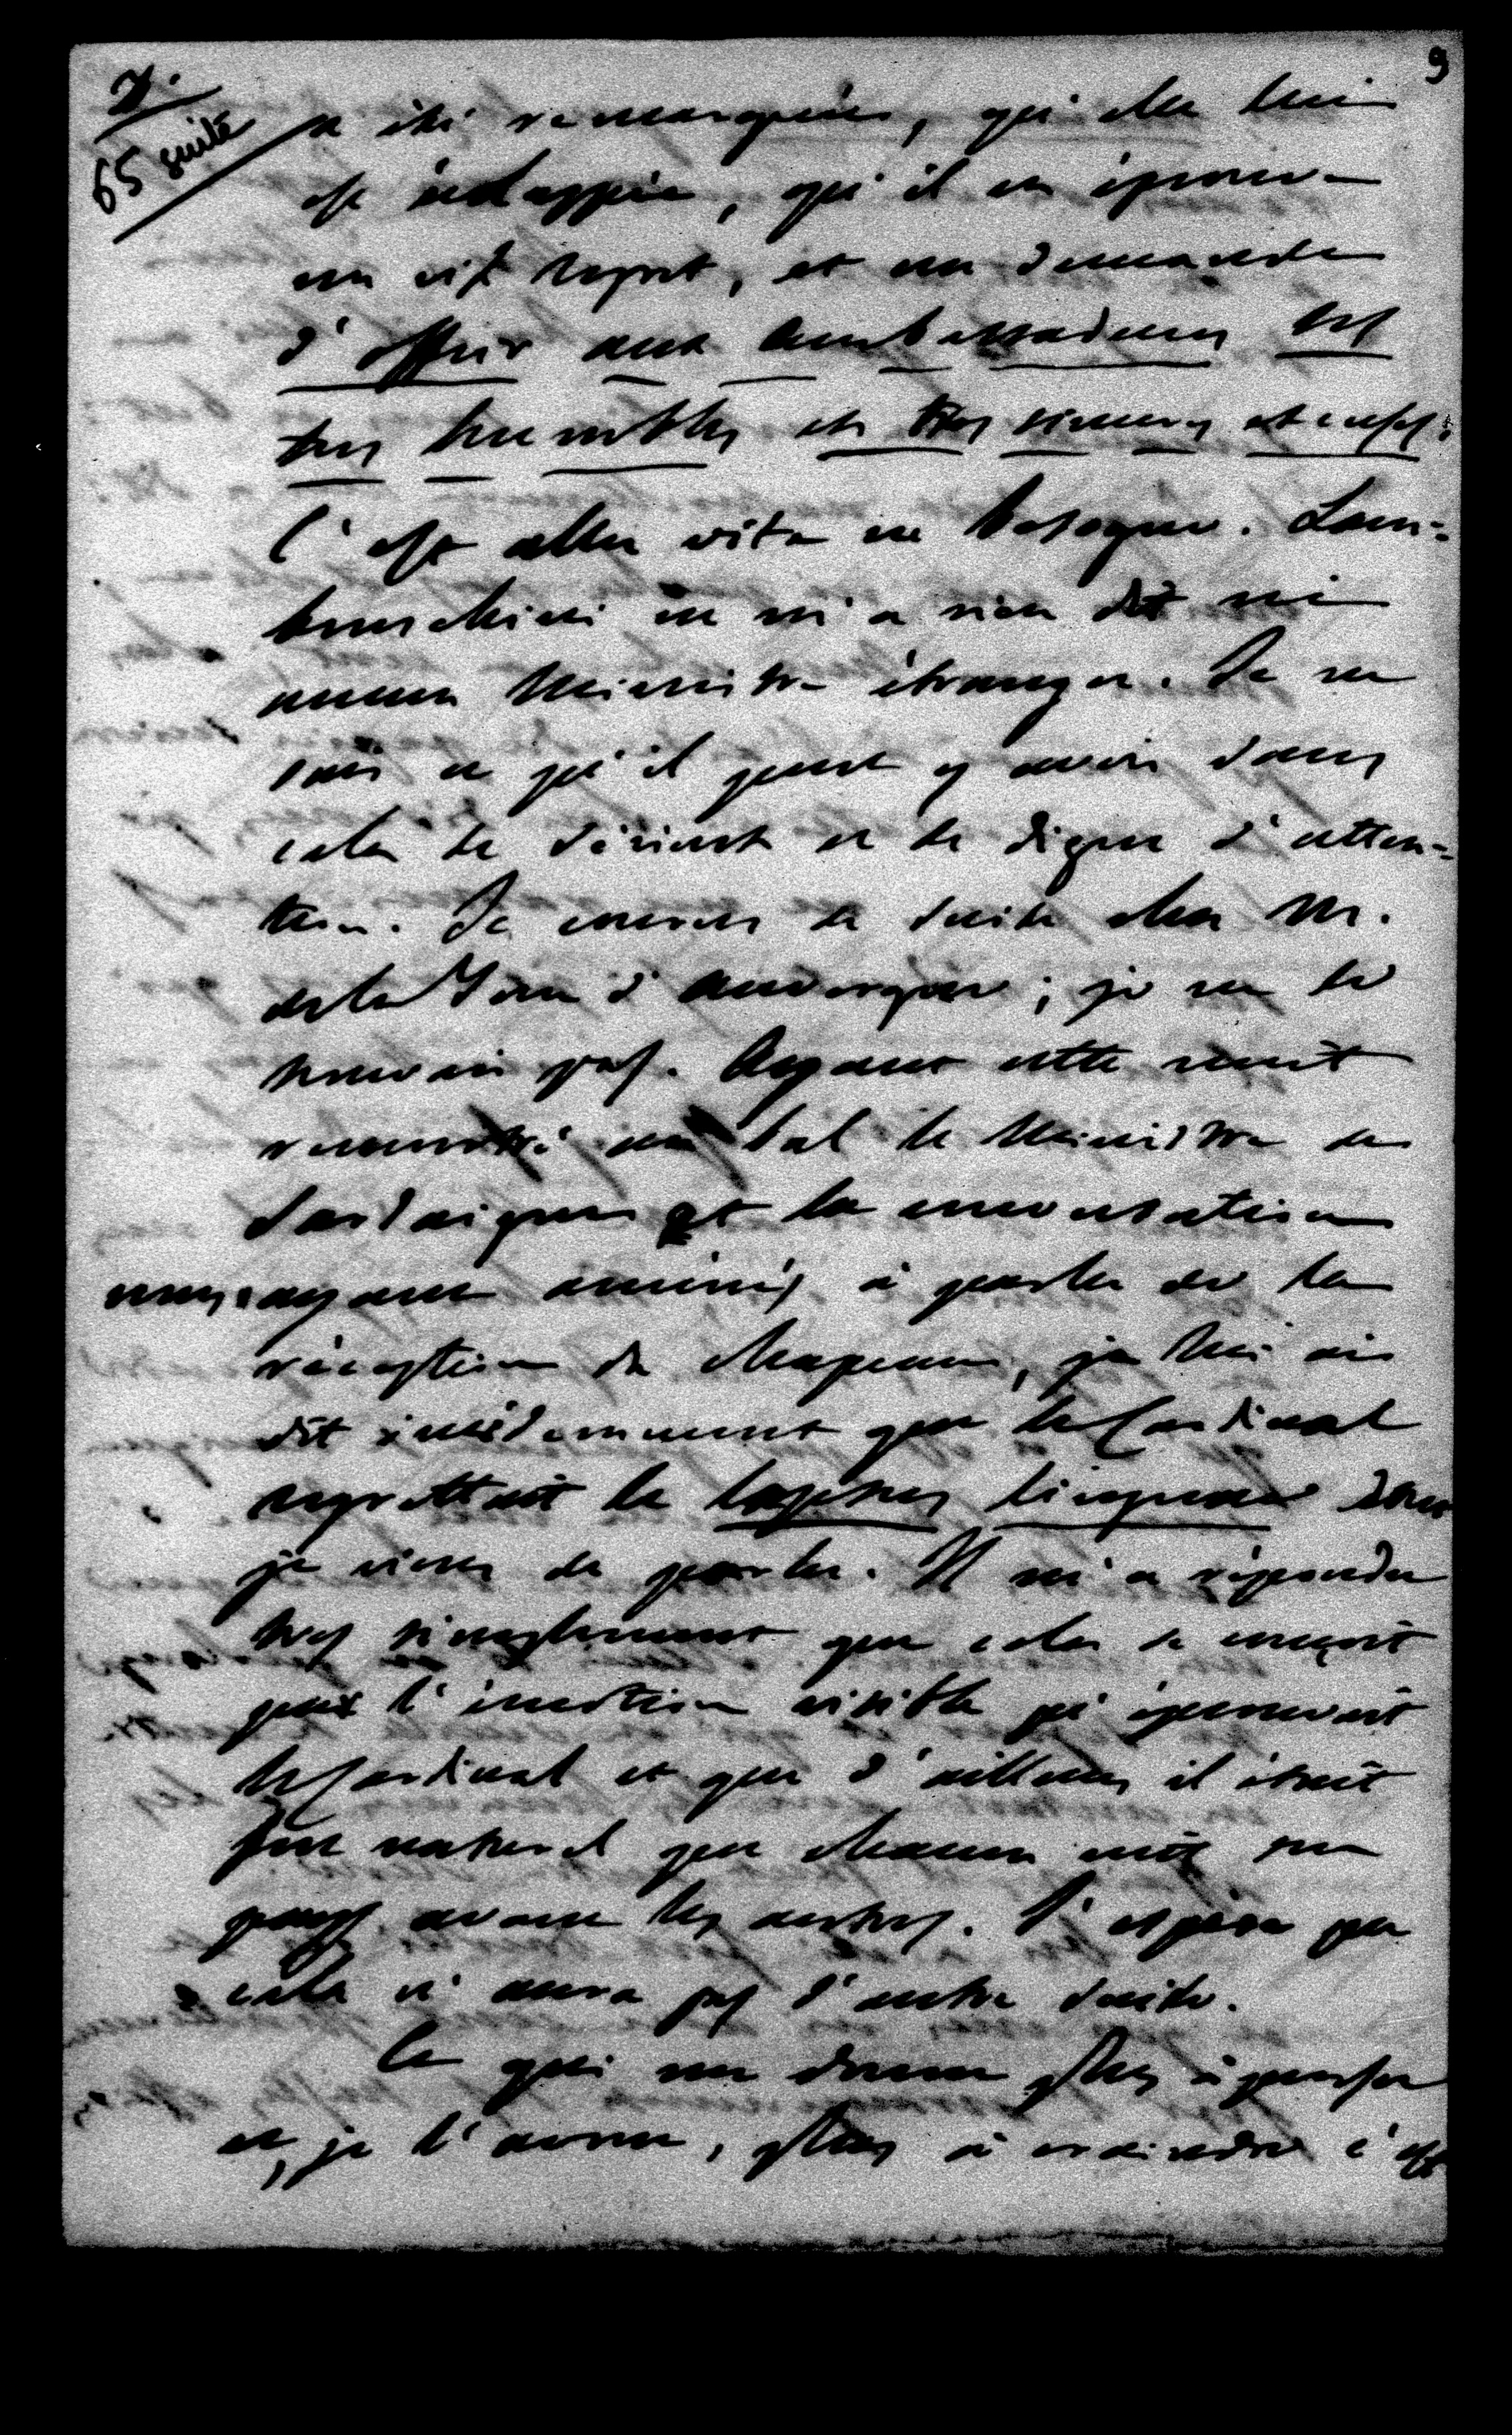 9
7.
65 suite
a été remarquée, qu'elle lui
est échappée, qu'il en éprouve
un vif regret, et me demande
d'offrir aux ambassadeurs ses
très humbles et très sincères excuses.
C'est aller vite en besogne. Lam-
bruschini ne m'a rien dit ni
aucun Ministre étranger. Je ne
sais ce qu'il peut y avoir dans
cela de sérieux et de digne d'atten-
tion. Je courus de suite chez M.
de la Tour d'Auvergne; je ne le
trouvai pas. Ayant cette nuit
rencontré au bal le Ministre de
Sardaigne et la conversation
nous ayant amenés à parler de la
réception du chapeau, je lui ai
dit incidemment que le Cardinal
regrettait le lapsus linguae dont
je viens de parler. Il m'a répondu
très simplement que cela se conçoit
par l'émotion visible qu'éprouvait
le Cardinal et que d'ailleurs il était
fort naturel que chacun mît son
pays avant les autres. J'espère que
cela n'aura pas d'autre suite.
Ce qui me donne plus à penser
et, je l'avoue, plus à craindre c'est